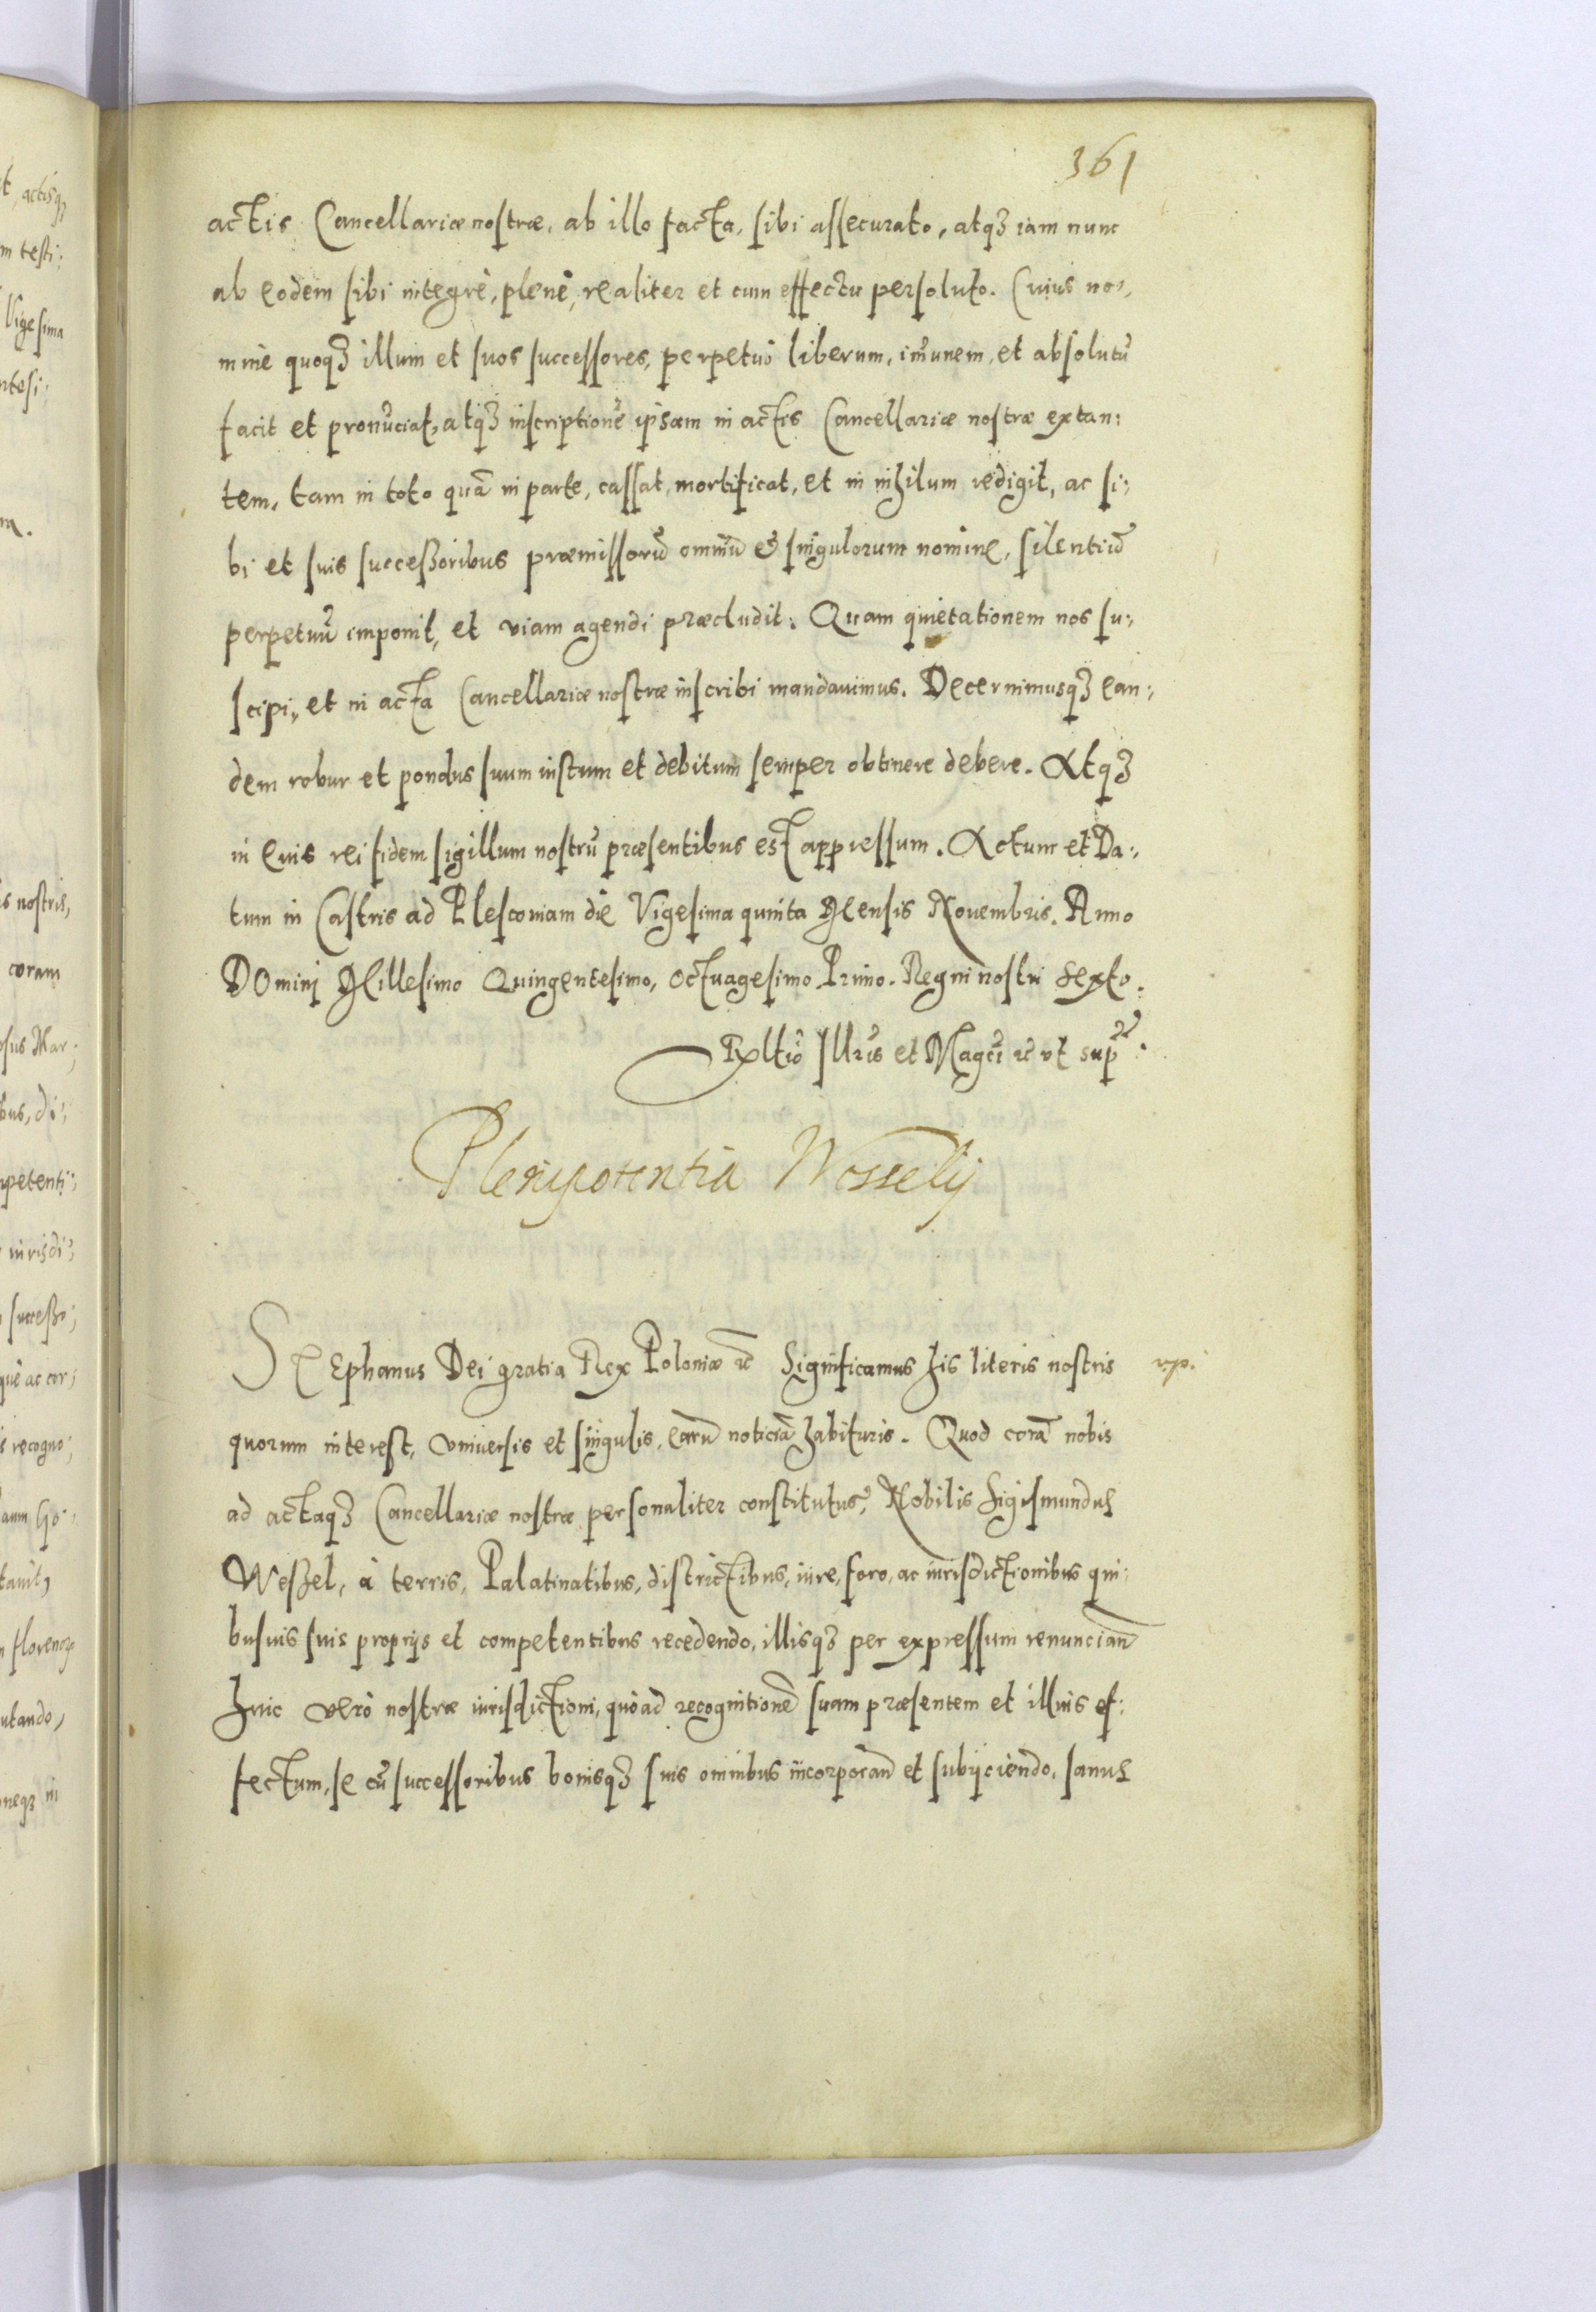 361
actis Cancellariæ nostræ, ab illo facta, sibi assecurato, atqꝫ iam nunc
ab eodem sibi integrè, plenè, realiter et cum effectu persoluto. Cuius no,
mine quoqꝫ illum et suos successores, perpetuò liberum, im̃unem, et absolutũ
facit et pronũciat, atqꝫ inscriptionẽ ipsam in actis Cancellariæ nostræ extan:
tem, tam in toto quã in parte, cassat, mortificat, et in nihilum redigit, ac si:
bi et suis successoribus præmissorũ omniũ & singulorum nomine, silentiũ
perpetuũ imponit, et viam agendi præcludit. Quam quietationem nos su:
scipi, et in acta Cancellariæ nostræ inscribi mandauimus. Decernimusqꝫ ean:
dem robur et pondus suum iustum et debitum semper obtinere debere. Atqꝫ
in euis rei fidem sigillum nostrũ præsentibus est appressum. Actum et Da:
tum in Castris ad Plescouiam die Vigesima quinta Mensis Nouembris. Anno
DOmini Millesimo Quingentesimo, octuagesimo Primo. Regni nostri sexto.
Rꝫltiõ Illris et Magci ꝛc vt supꝛ.
Plenipotentia Wesselij
STEphanus Dei gratia Rex Poloniæ ꝛc Significamus his literis nostris
rp.
quorum interest, vniuersis et singulis, earũ noticiã habituris. Quod corã nobis
ad actaqꝫ Cancellariæ nostræ personaliter constitutus, Nobilis Sigismundus
Weßel, à terris, Palatinatibus, districtibus, iure, foro, ac iurisdictionibus qui:
busuis suis proprijs et competentibus recedendo, illisqꝫ per expressum renuncian̄
huic verò nostræ iurisdictioni, quòad recognitionẽ suam præsentem et illius ef:
fectum, se cũ successoribus bonisqꝫ suis omnibus incorporan̄ et subijciendo, sanus